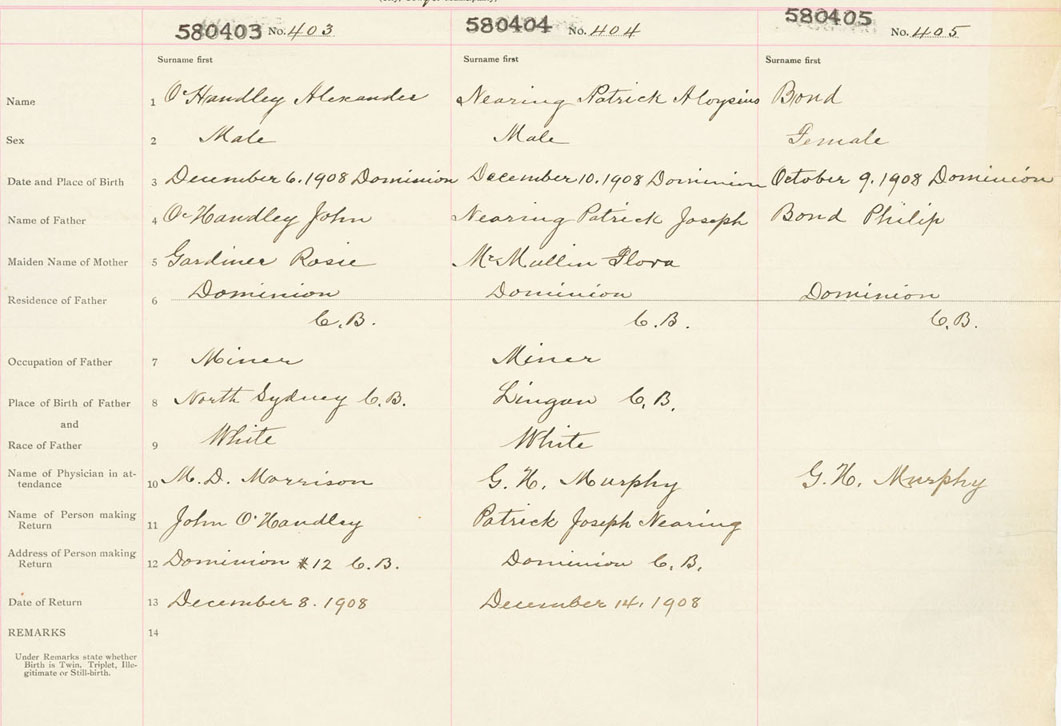 580403 No. 403 580404 No. 404 580405 No. 405
Surname first Surname first Surname first
Name 1 O'Handley Alexander Nearing Patrick Aloysius Bond
Sex 2 Male Male Female
Date and Place of Birth 3 December 6. 1908 Dominion December 10. 1908 Dominion October 9. 1908 Dominion
Name of Father 4 O'Handley John Nearing Patrick Joseph Bond Philip
Maiden Name of Mother 5 Gardiner Rosie McMullin Flora
Residence of Father 6 Dominion Dominion Dominion
C.B. C.B. C.B.
Occupation of Father 7 Miner Miner
Place of Birth of Father 8 North Sydney C.B. Lingan C.B.
and
Race of Father 9 White White
Name of Physician in at-
tendance 10 M. D. Morrison G. H. Murphy G. H. Murphy
Name of Person making
Return 11 John O'Handley Patrick Joseph Nearing
Address of Person making
Return 12 Dominion #12 C.B. Dominion C.B.
Date of Return 13 December 8. 1908 December 14. 1908
REMARKS 14
Under Remarks state whether
Birth is Twin, Triplet, Ille-
gitimate or Still-birth.